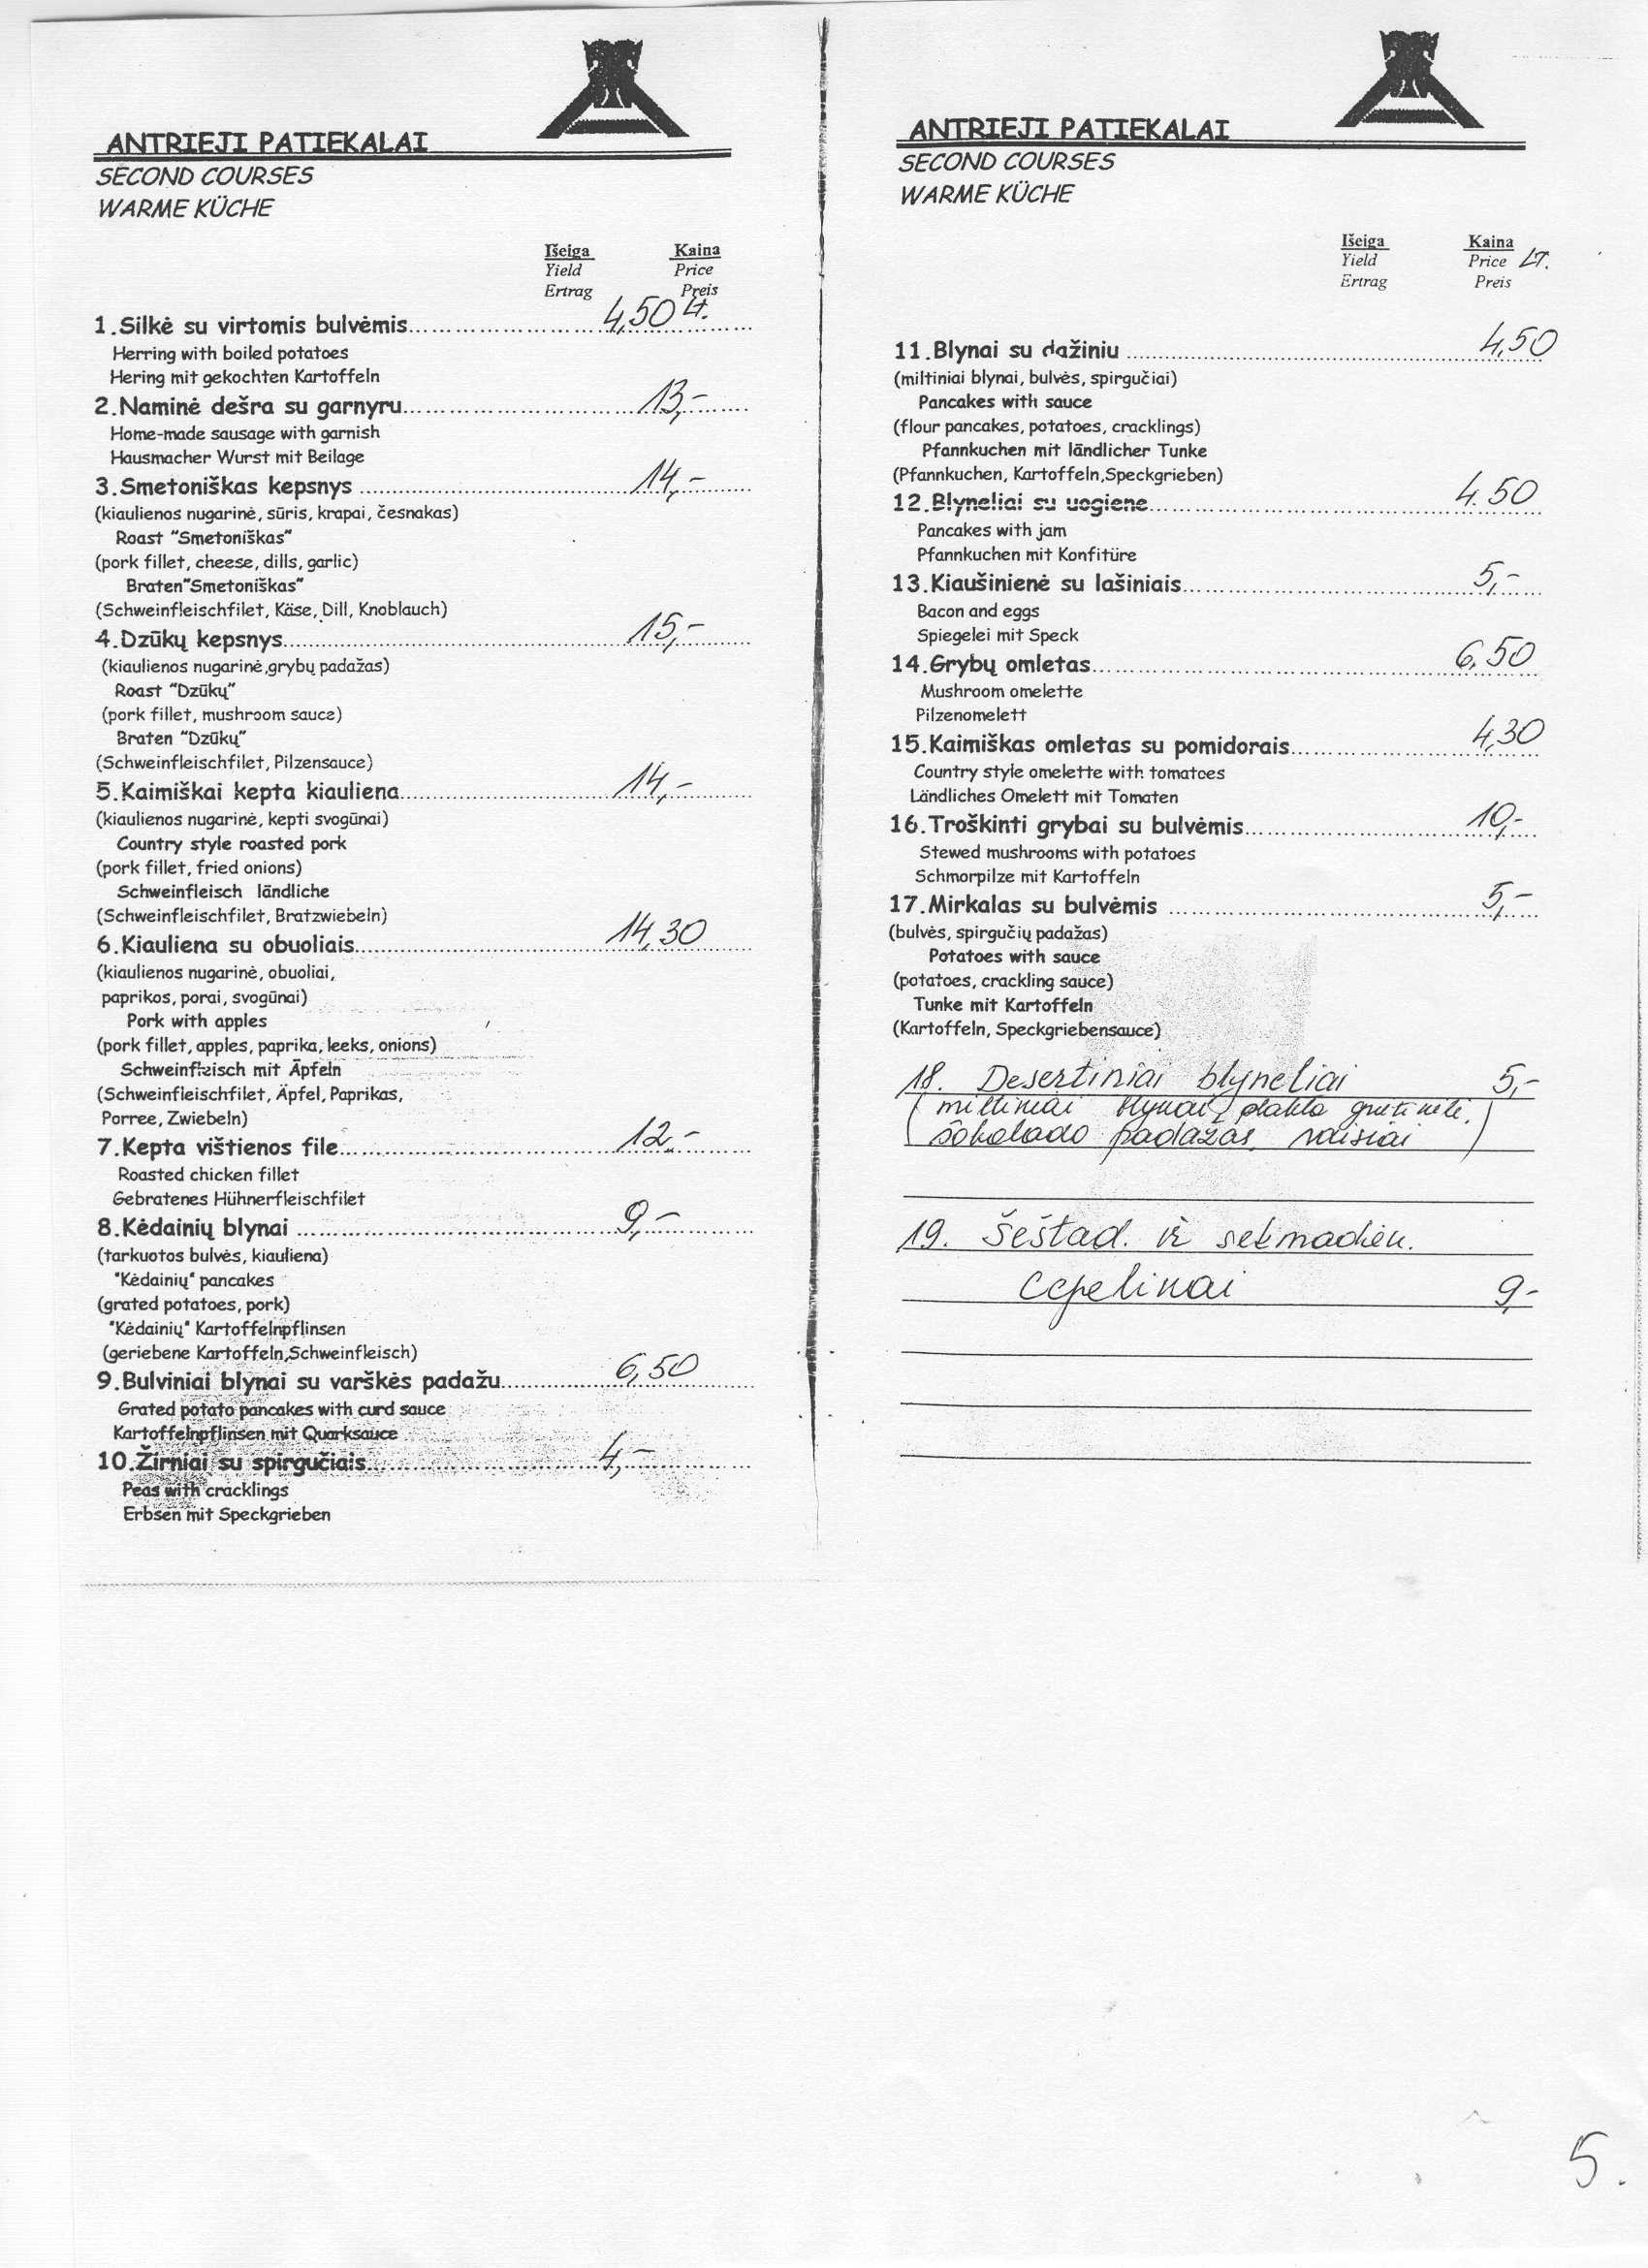 ANTRIEJI PATIEKALAI
SECOND COURSES
WARME KÜCHE
Išeiga Kaina
Yield Price
Ertrag Preis
1.Silkė su virtomis bulvėmis 4,50 Lt.
Herring with boiled potatoes
Hering mit gekochten Kartoffeln
2.Naminė dešra su garnyru 13,-
Home-made sausage with garnish
Hausmacher Wurst mit Beilage
3.Smetoniškas kepsnys 14,-
(kiaulienos nugarinė, sūris, krapai, česnakas)
Roast "Smetoniškas"
(pork fillet, cheese, dills, garlic)
Braten"Smetoniškas"
(Schweinfleischfilet, Käse, Dill, Knoblauch)
4.Dzūkų kepsnys 15,-
(kiaulienos nugarinė,grybų padažas)
Roast "Dzūkų"
(pork fillet, mushroom sauce)
Braten "Dzūkų"
(Schweinfleischfilet, Pilzensauce)
5.Kaimiškai kepta kiauliena 14,-
(kiaulienos nugarinė, kepti svogūnai)
Country style roasted pork
(pork fillet, fried onions)
Schweinfleisch ländliche
(Schweinfleischfilet, Bratzwiebeln)
6.Kiauliena su obuoliais 14,30
(kiaulienos nugarinė, obuoliai,
paprikos, porai, svogūnai)
Pork with apples
(pork fillet, apples, paprika, leeks, onions)
Schweinfleisch mit Äpfeln
(Schweinfleischfilet, Äpfel, Paprikas,
Porree, Zwiebeln)
7.Kepta vištienos file 12,-
Roasted chicken fillet
Gebratenes Hühnerfleischfilet
8.Kėdainių blynai 9,-
(tarkuotos bulvės, kiauliena)
"Kėdainių" pancakes
(grated potatoes, pork)
"Kėdainių" Kartoffelnpflinsen
(geriebene Kartoffeln,Schweinfleisch)
9.Bulviniai blynai su varškės padažu 6,50
Grated potato pancakes with curd sauce
Kartoffelnpflinsen mit Quarksauce
10.Žirniai su spirgučiais 4,-
Peas with cracklings
Erbsen mit Speckgrieben
ANTRIEJI PATIEKALAI
SECOND COURSES
WARME KÜCHE
Išeiga Kaina
Yield Price LT.
Ertrag Preis
11.Blynai su dažiniu 4,50
(miltiniai blynai, bulvės, spirgučiai)
Pancakes with sauce
(flour pancakes, potatoes, cracklings)
Pfannkuchen mit ländlicher Tunke
(Pfannkuchen, Kartoffeln,Speckgrieben)
12.Blyneliai su uogiene 4.50
Pancakes with jam
Pfannkuchen mit Konfitüre
13.Kiaušinienė su lašiniais 5,-
Bacon and eggs
Spiegelei mit Speck
14.Grybų omletas 6,50
Mushroom omelette
Pilzenomelett
15.Kaimiškas omletas su pomidorais 4,30
Country style omelette with tomatoes
Ländliches Omelett mit Tomaten
16.Troškinti grybai su bulvėmis 10,-
Stewed mushrooms with potatoes
Schmorpilze mit Kartoffeln
17.Mirkalas su bulvėmis 5,-
(bulvės, spirgučių padažas)
Potatoes with sauce
(potatoes, crackling sauce)
Tunke mit Kartoffeln
(Kartoffeln, Speckgriebensauce)
18. Desertiniai blyneliai 5,-
(miltiniai blynai, plakta grietinėlė,
šokolado padažas, vaisiai)
19. Šeštad. ir sekmadien.
Cepelinai 9,-
5.